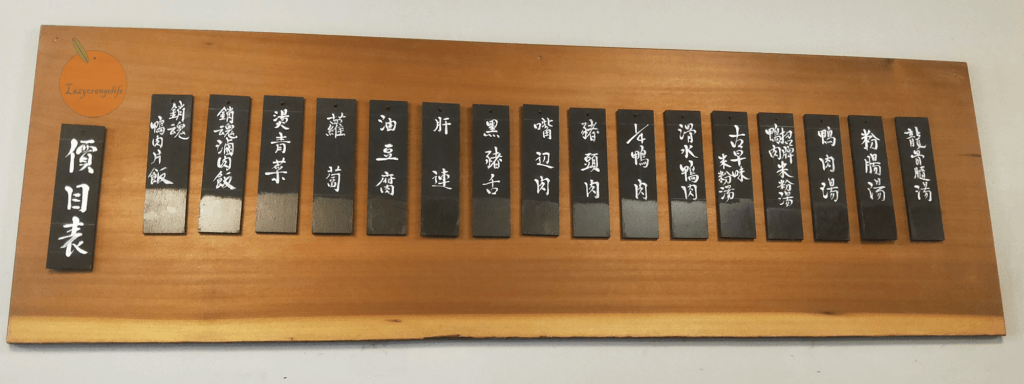 Lazyorangelife
價目表
銷魂
鴨肉片飯
銷魂滷肉飯
燙青菜
蘿蔔
油豆腐
肝連
黑豬舌
嘴边肉
豬頭肉
¼鴨肉
滑水鴨肉
古早味
米粉湯
招牌
鴨肉米粉湯
鴨肉湯
粉腸湯
龍骨髓湯